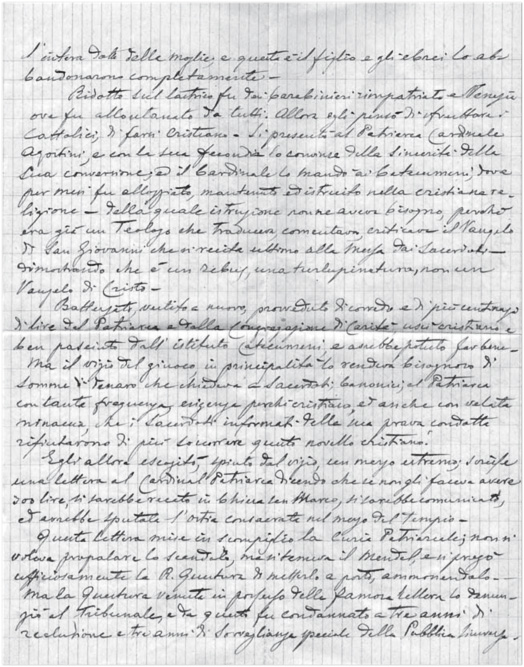 l'intera dote della moglie, e questa è il figlio e gli ebrei lo ab-
bandonarono completamente -
Ridotto sul lastrico fu dai Carabinieri rimpatriato a Venezia
ove fu allontanato da tutti. Allora egli pensò di sfruttare i
Cattolici, di farsi Cristiano - Si presentò al Patriarca Cardinale
Agostini, e con la sua facondia lo convinse della sincerità della
sua conversione, e il Cardinale lo mandò ai Catecumeni, dove
per mesi fu alloggiato, mantenuto ed istruito nella cristiana re-
ligione - della quale istruzione non ne aveva bisogno, perchè
era già un Teologo che traduceva comentava criticava il Vangelo
di San Giovanni che si recita ultimo alla Messa dai Sacerdoti -
dimostrando che è un rebus, una turlupinatura, non un
Vangelo di Cristo -
Battezzato, vestito a nuovo, proveduto di corredo e di più centinaja
di lire dal Patriarca e dalla Congregazione di Carità uscì cristiano e
ben pasciuto dall'istituto Catecumeni e avrebbe potuto far bene -
Ma il vizio del giuoco in principalità lo rendeva bisognoso di
somme di denaro che chiedeva a Sacerdoti Canonici, al Patriarca
con tanta frequenza, esigenza perchè cristiano, ed anche con velata
minaccia, che i Sacerdoti informati della sua prava condotta
rifiutarono di più soccorrere questo novello cristiano.
Egli allora escogitò, spinto dal vizio, un mezzo estremo; scrisse
una lettera al Cardinal Patriarca dicendo che se non gli faceva avere
300 lire, si sarebbe recato in Chiesa San Marco, si sarebbe comunicato,
ed avrebbe sputato l'ostia consacrata nel mezzo del Tempio -
Questa lettera mise in scompiglio la Curia Patriarcale; non si
voleva propalare lo scandalo, ma si temeva il Mendel, e si pregò
ufficiosamente la R. Questura di metterlo a posto, ammonendolo -
Ma la Questura venuta in possesso della famosa lettera lo denun-
ziò al Tribunale, e da questo fu condannato a tre anni di
reclusione e tre anni di Sorveglianza speciale della Pubblica Sicurezza -